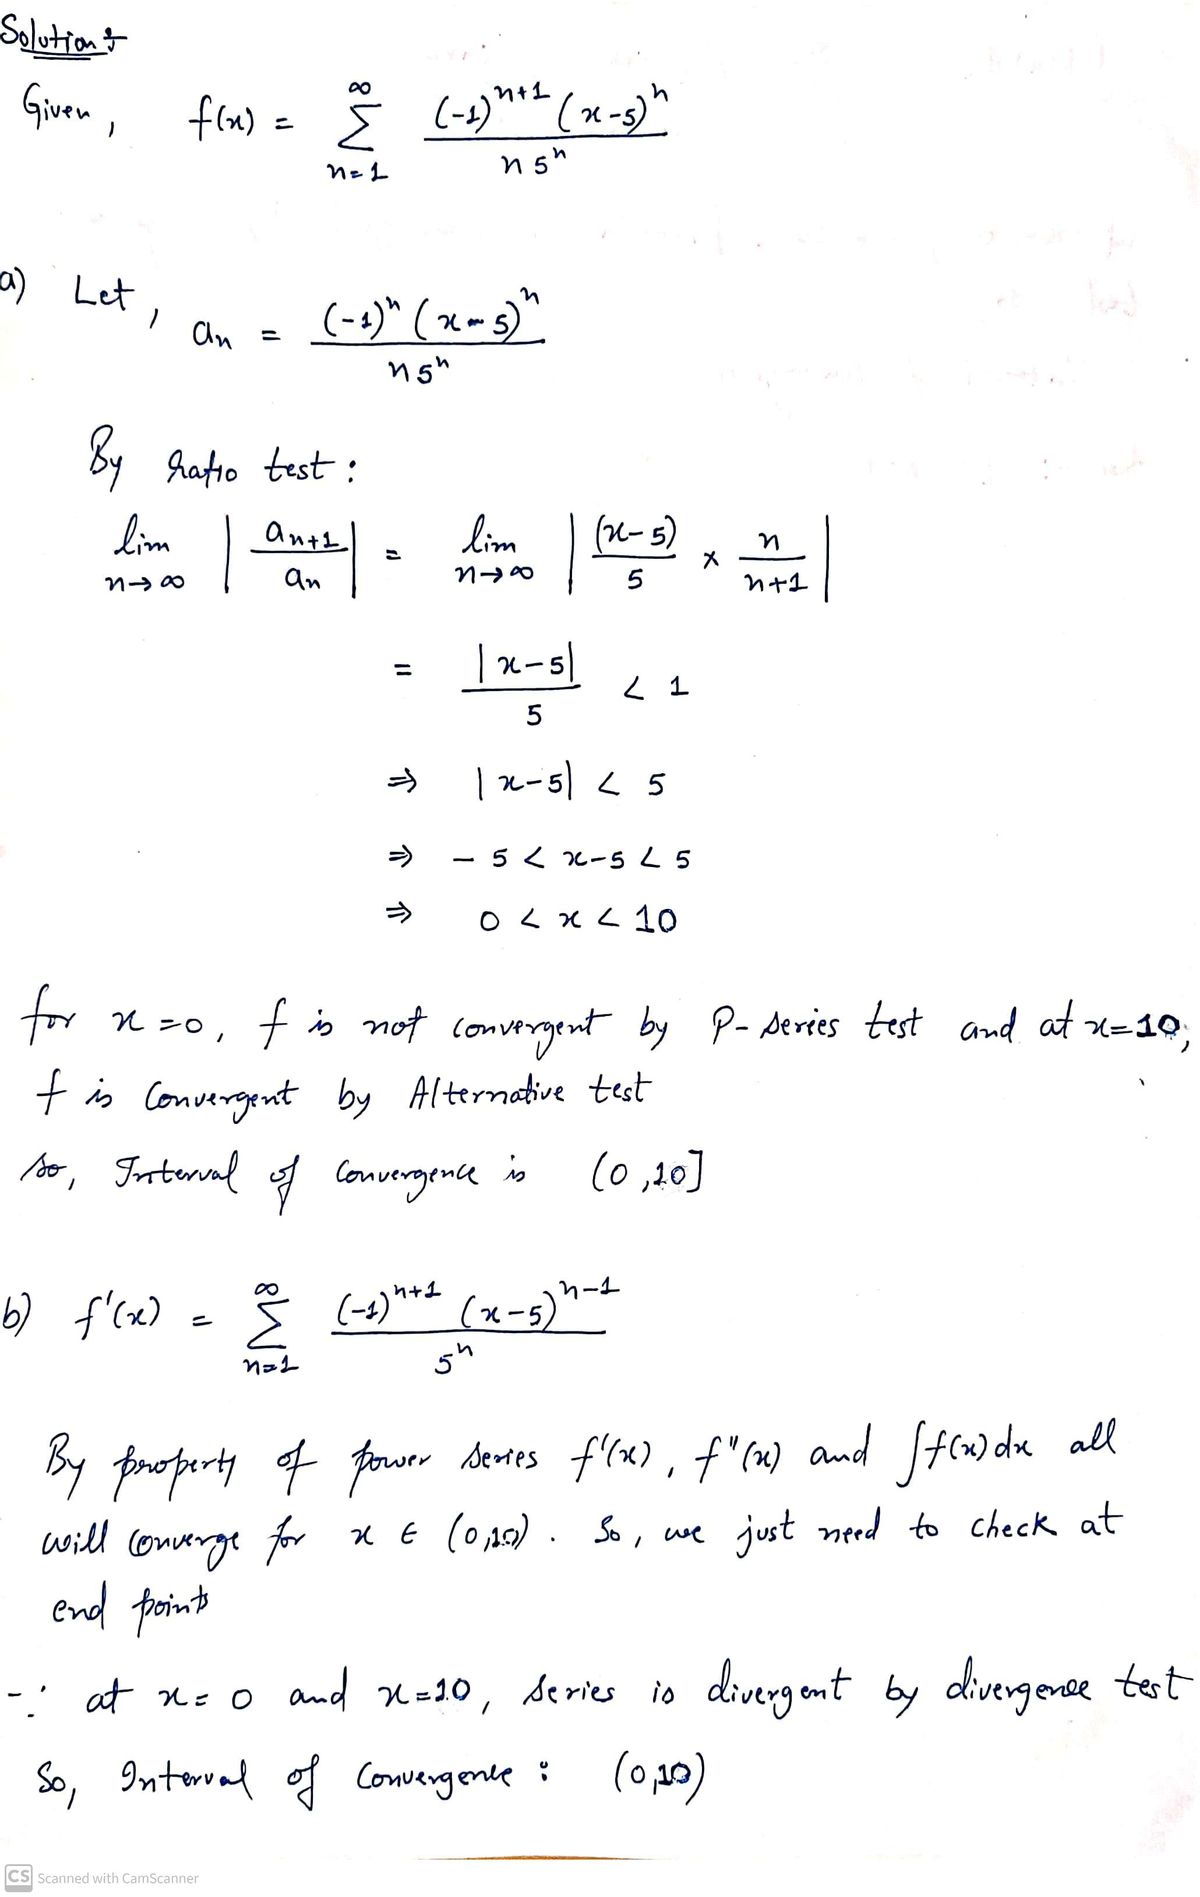 Solution :
Given, f(x) = ∞ Σ n=1 (-1)^{n+1} (x-5)^n / n 5^n
a) Let, a_n = (-1)^n (x-5)^n / n 5^n
By ratio test :
lim n→∞ | a_{n+1} / a_n | = lim n→∞ | (x-5) / 5 × n / n+1 |
= |x-5| / 5 < 1
⇒ |x-5| < 5
⇒ - 5 < x-5 < 5
⇒ 0 < x < 10
for x=0, f is not convergent by P-series test and at x=10,
f is Convergent by Alternative test
so, Interval of Convergence is (0,10]
b) f'(x) = ∞ Σ n=1 (-1)^{n+1} (x-5)^{n-1} / 5^n
By property of power series f'(x), f"(x) and ∫f(x)dx all
will converge for x ∈ (0,10). So, we just need to check at
end points
-: at x=0 and x=10, series is divergent by divergence test
So, Interval of Convergence : (0,10)
CS Scanned with CamScanner